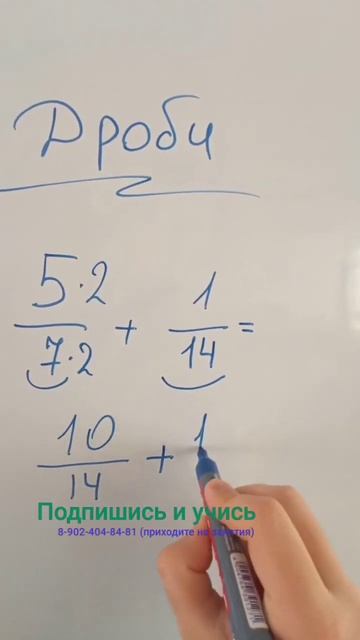 Дроби
5·2 1
7·2 + 14 =
10 1
14 +
Подпишись и учись
8-902-404-84-81 (приходите на занятия)